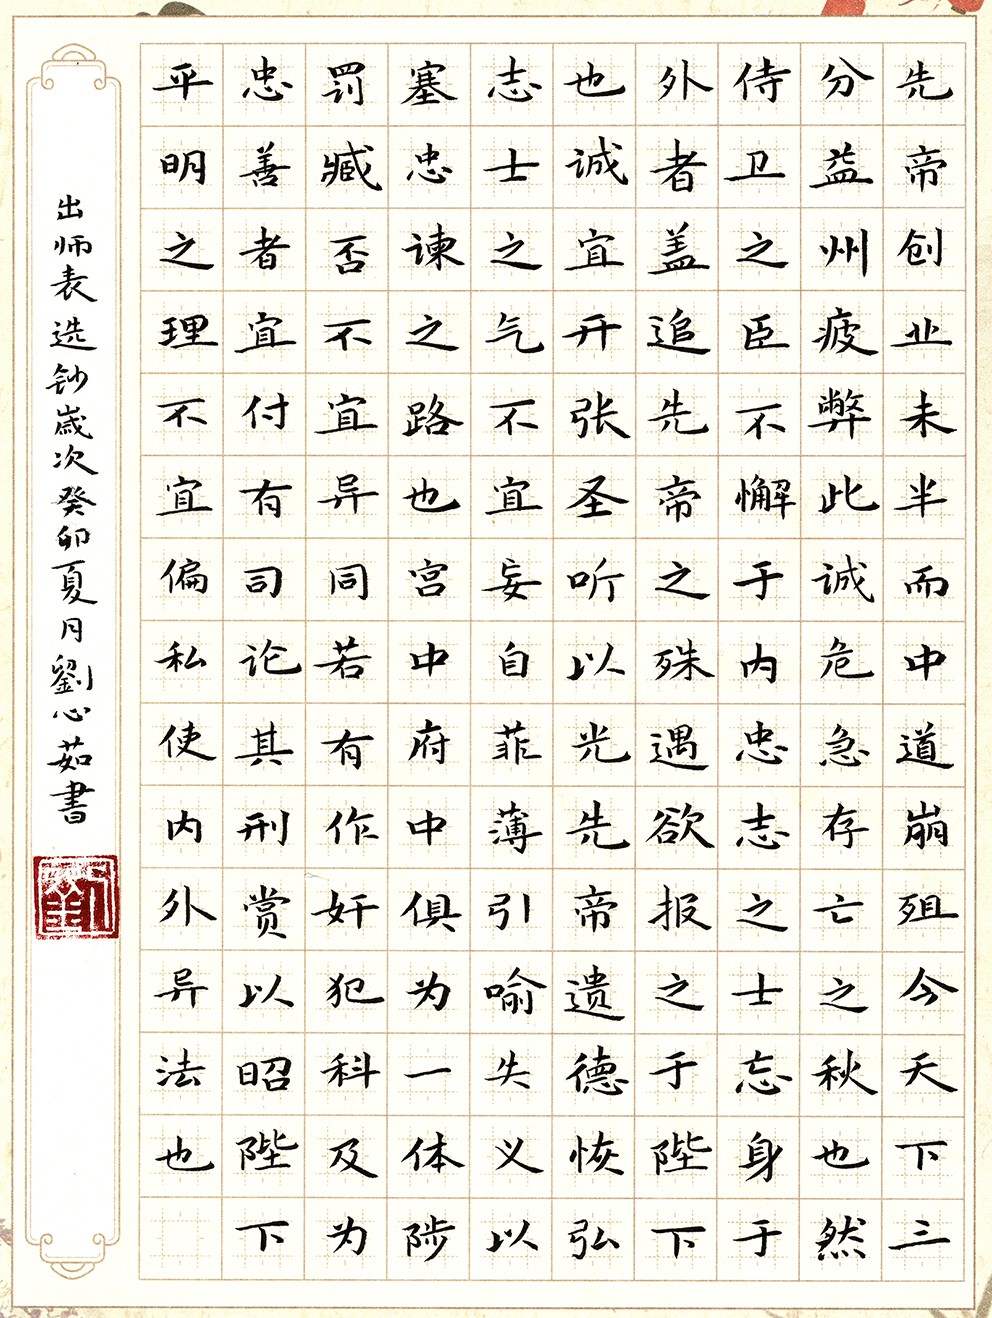 先帝创业未半而中道崩殂今天下三
分益州疲弊此诚危急存亡之秋也然
侍卫之臣不懈于内忠志之士忘身于
外者盖追先帝之殊遇欲报之于陛下
也诚宜开张圣听以光先帝遗德恢弘
志士之气不宜妄自菲薄引喻失义以
塞忠谏之路也宫中府中俱为一体陟
罚臧否不宜异同若有作奸犯科及为
忠善者宜付有司论其刑赏以昭陛下
平明之理不宜偏私使内外异法也
出师表选钞岁次癸卯夏月劉心茹書
劉